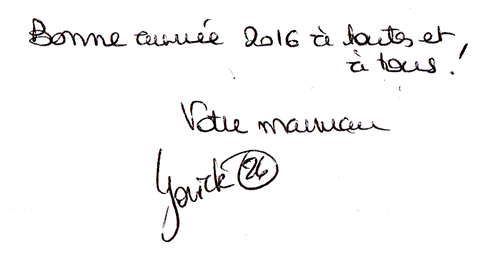 Bonne année 2016 à toutes et
à tous !
Votre maman
Yorick 26